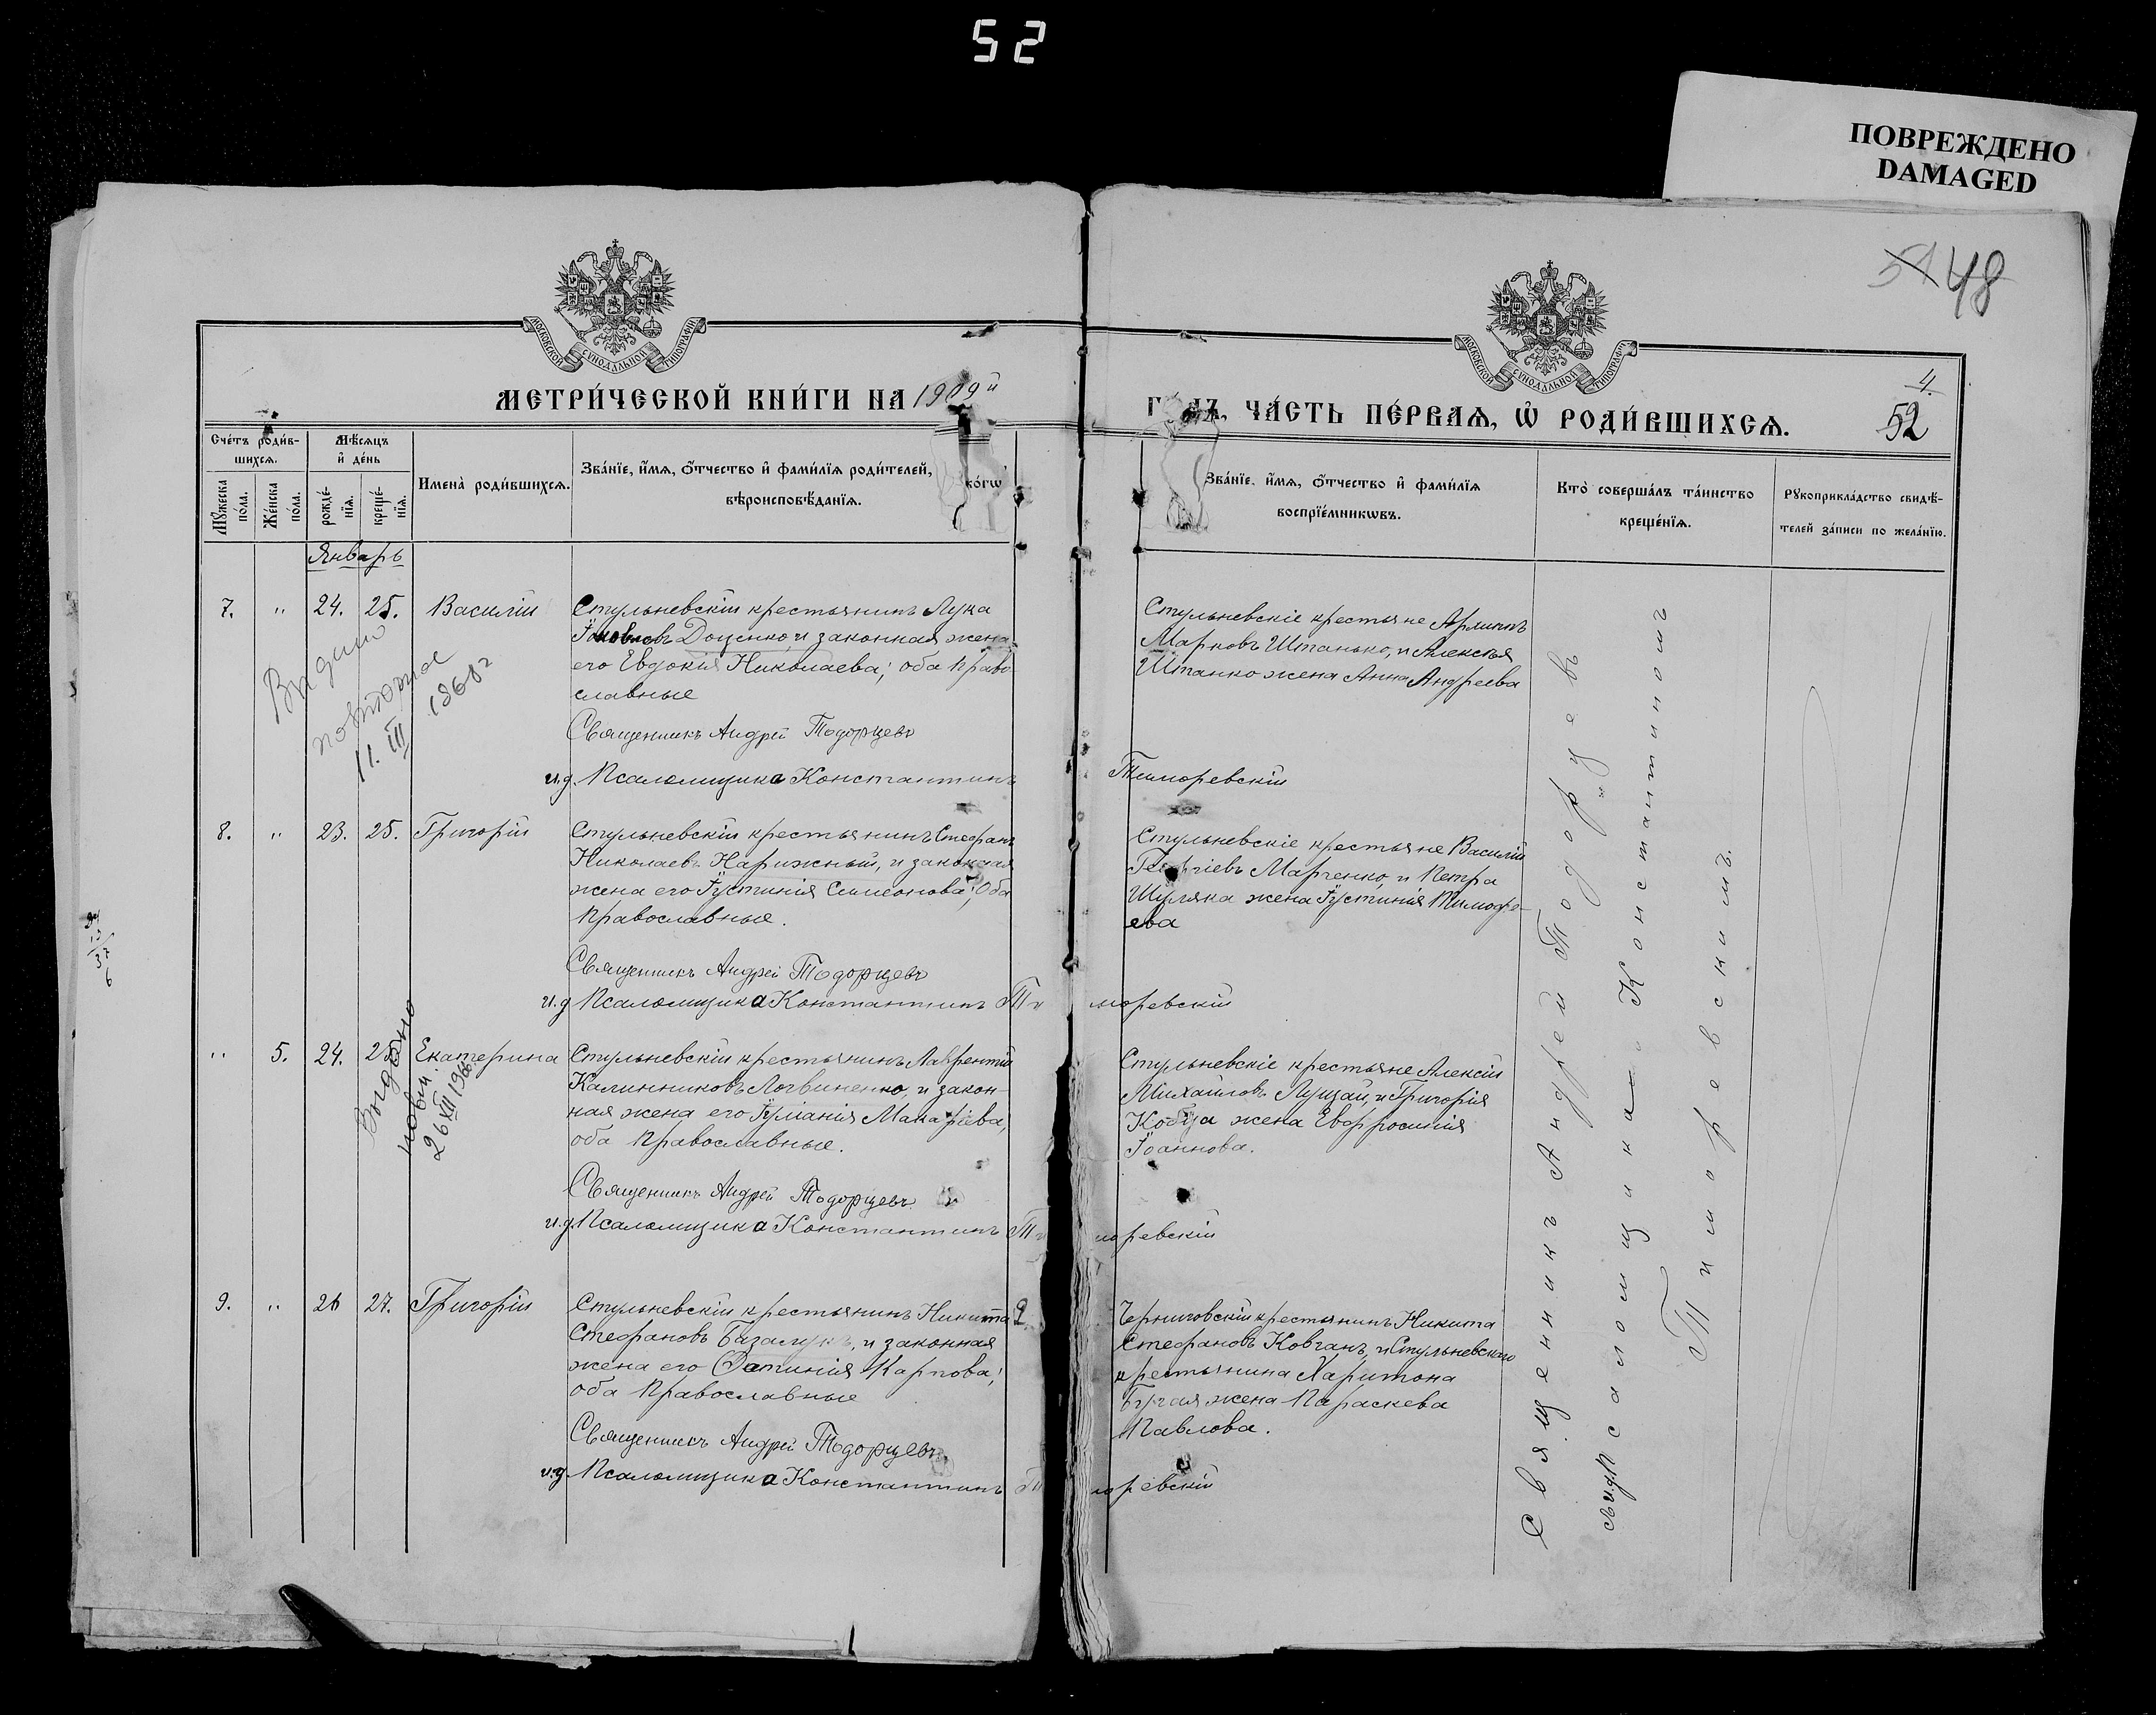 52
ПОВРЕЖДЕНО
DAMAGED
51 48
МОСКОВСКОЙ СѴНОДАЛЬНОЙ ТИПОГРАФІИ
МОСКОВСКОЙ СѴНОДАЛЬНОЙ ТИПОГРАФІИ
МЕТРИ́ЧЕСКОЙ КНИ́ГИ НА 1909й
ГО́ДЪ, ЧА́СТЬ ПЕ́РВАѦ, Ѿ РОДИ́ВШИХСѦ.
4.
52
Сче́тъ роди́в-
шихсѧ.
Мѣ́сѧцъ
и҆ де́нь
Мꙋ́жеска
по́ла.
Же́нска
по́ла.
рожде́-
нїѧ.
креще́-
нїѧ.
Имена̀ роди́вшихсѧ.
Зва́нїе, и҆́мѧ, ѻ҆́тчество и҆ фами́лїѧ роди́телей,
ко́гѡ
вѣроисповѣ́данїѧ.
Зва́нїе, и҆́мѧ, ѻ҆́тчество и҆ фами́лїѧ
воспрїе́мникѡвъ.
Кто̀ соверша́лъ та́инство
креще́нїѧ.
Рꙋкоприкла́дство свидѣ́-
телей за́писи по жела́нїю.
Январь
7. " 24. 25. Василій
Стульневскій крестьянинъ Лука
Іаковлевъ Доценко, и законная жена
его Евдокія Николаева; оба Право
славные
Священникъ Андрей Тодорцевъ
и.д. Псаломщика Константинъ Тиморевскій
Стульневскіе крестьяне
Марковъ Штанько, и Алексѣя
Штанко жена Анна Андреева
повторное
11. III 1968г
8. " 23. 25. Григорій
Стульневскій крестьянинъ Стефанъ
Николаевъ Нарижный, и законная
жена его Іустинія Симеонова; Оба
Православные.
Священникъ Андрей Тодорцевъ
и.д Псаломщика Константинъ Тиморевскій
Стульневскіе крестьяне Василій
Георгіевъ Марченко, и Петра
Шуляка жена Іустинія Тимофе-
ева
" 5. 24. 25. Екатерина
Стульневскій крестьянинъ Лаврентій
Калинниковъ Логвиненко, и закон-
ная жена его Іуліанія Макаріева,
оба Православные.
Священникъ Андрей Тодорцевъ
и.д. Псаломщика Константинъ Тиморевскій
Стульневскіе крестьяне Алексій
Михайловъ Лущай, и Григорія
Кобца жена Евфросинія
Іоаннова.
Выдано
повт.
26 XII 196
9. " 26 27. Григорій
Стульневскій крестьянинъ Никита
Стефановъ Базалукъ, и законная
жена его Фатинія Карпова;
оба Православные
Священникъ Андрей Тодорцевъ
и.д. Псаломщика Константинъ Тиморевскій
Черниговскій крестьянинъ Никита
Стефановъ Ковганъ, и Стульневскаго
крестьянина Харитона
Бугая жена Параскева
Павлова.
Священникъ Андрей Тодорцевъ
съ и.д. Псаломщика Константиномъ
Тиморевскимъ.